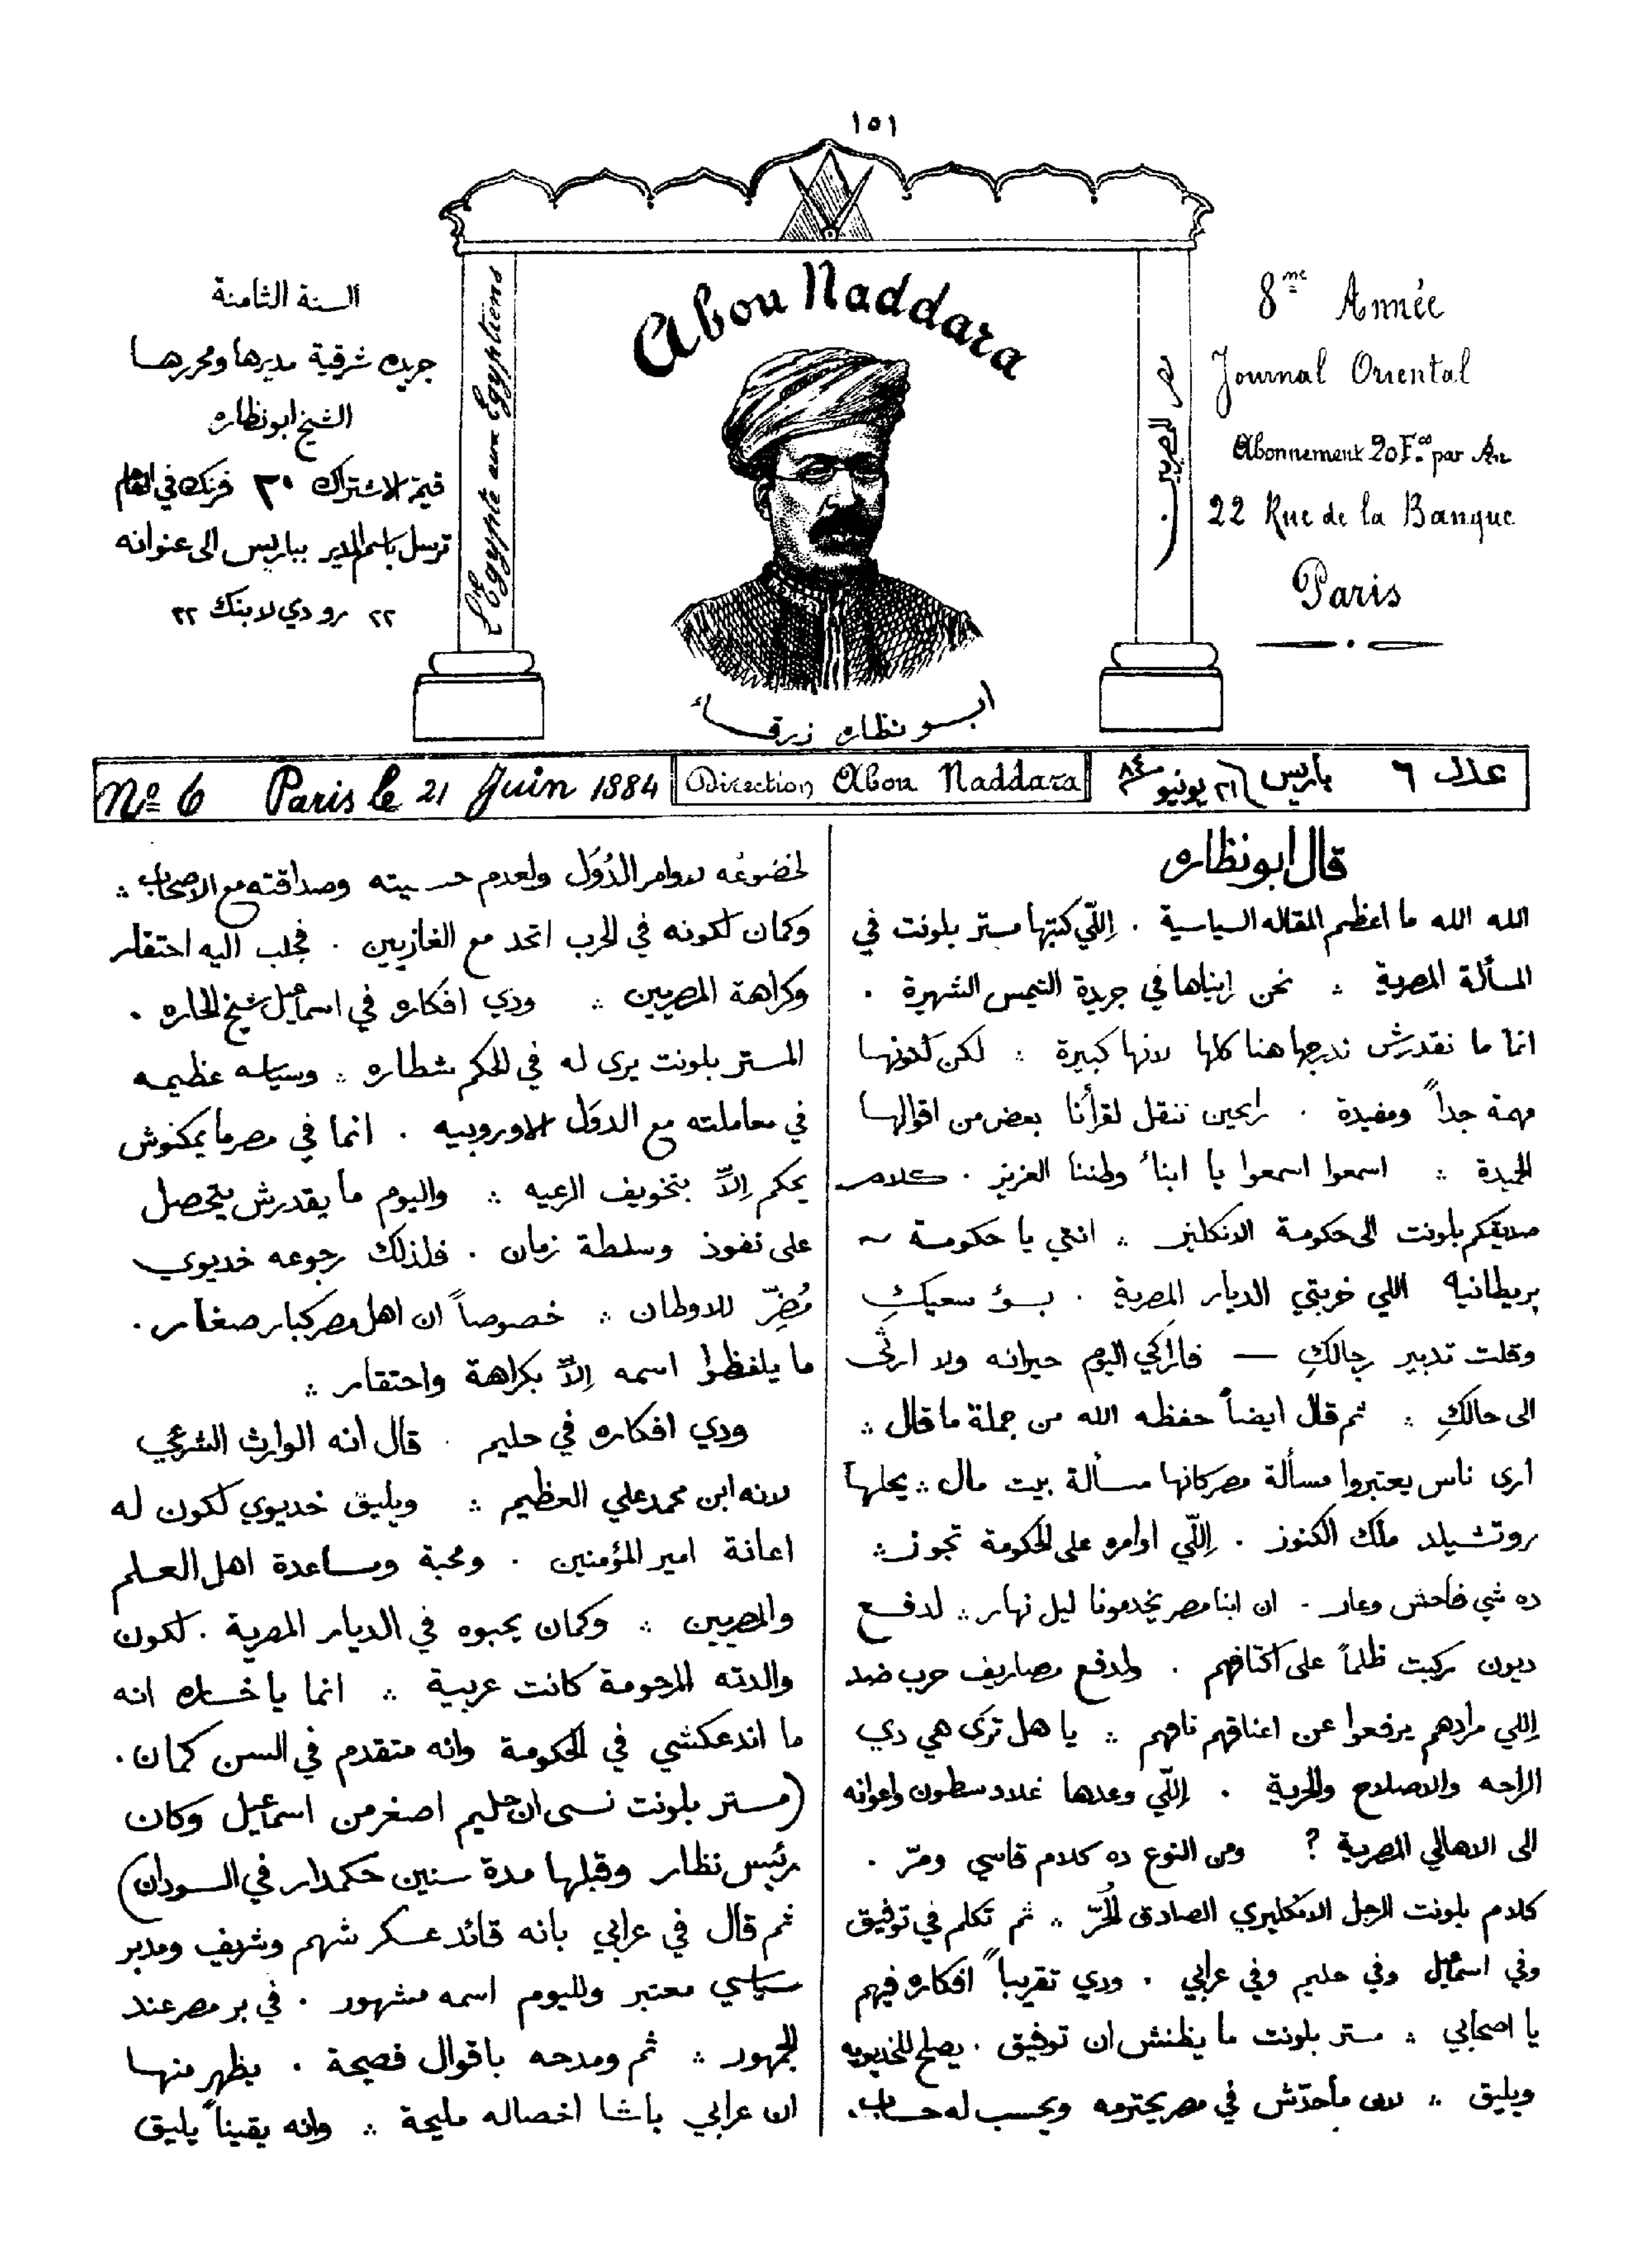 ١٥١
السنة الثامنة
جريده شرقية مديرها ومحررها
الشيخ ابو نظاره
قيمة الاشتراك ٢٠ فرنك في العام
ترسل باسم المدير بباريس الى عنوانه
٢٢ رو دي لا بنك ٢٢
L'Egypte aux Egyptiens
Abou Naddara
ابو نظاره زرقاء
مصر للمصريين
8me Année
Journal Oriental
Abonnement 20 F.co par An
22 Rue de la Banque
Paris
No 6 Paris le 21 Juin 1884
Direction Abou Naddara
عدد ٦ باريس ٢١ يونيو سنة ٨٤
قال ابو نظاره
الله الله ما اعظم المقاله السياسية . اِللّي كتبها مستر بلونت في
المسألة المصرية ؞ نحن رايناها في جريدة التيمس الشهيرة .
انما ما نقدرش ندرجها هنا كلها لانها كبيرة ؞ لكن لكونها
مهمة جداً ومفيدة . رايحين ننقل لقرأنا بعض من اقوالها
الجيدة ؞ اسمعوا اسمعوا يا ابناء وطننا العزيز . كلام
صديقكم بلونت الى حكومة الانكليز ؞ انتي يا حكومة ~
بريطانيه اللي خربتي الديار المصرية . بسؤ سعيكِ
وقلت تدبير رجالكِ — فاراكي اليوم حيرانه ولا ارثى
الى حالكِ ؞ ثم قال ايضاً حفظه الله من جملة ما قال ؞
ارى ناس يعتبروا مسألة مصر كانها مسألة بيت مال ؞ يحلها
روتشيلد ملك الكنوز . اِللّي اوامره على الحكومة تجوز ؞
ده شي فاحش وعار . ان ابنا مصر يخدمونا ليل نهار ؞ لدفع
ديون ركبت ظلماً على اكتافهم . ولدفع مصاريف حرب ضد
اِللي مرادهم يرفعوا عن اعناقهم نافهم ؞ يا هل ترى هي دي
الراحه والاصلاح والحرية . اِللّي وعدها غلادسطون واعوانه
الى الاهالي المصرية ? ومن النوع ده كلام قاسي ومرّ .
كلام بلونت الرجل الانكليزي الصادق الحُرّ ؞ ثم تكلم في توفيق
وفي اسمعيل وفي حليم وفي عرابي . ودي تقريباً افكاره فيهم
يا اصحابي ؞ مستر بلونت ما يظنش ان توفيق . يصلح للخديويه
ويليق ؞ لان ماحدّش في مصر يحترمه ويحسب له حساب .
لخضوعُه لاوامر الدُوَل ولعدم حسيته وصداقته مع الاصحاب ؞
وكمان لكونه في الحرب اتحد مع الغازيين . فجلب اليه احتقار
وكراهة المصريين ؞ ودي افكاره في اسماعيل شيخ الحاره .
المستر بلونت يرى له في الحكم شطاره ؞ وسياسه عظيمه
في معاملته مع الدوَل الاوروبيه . انما في مصر ما يمكنوش
يحكم اِلاّ بتخويف الرعيه ؞ واليوم ما يقدرش يتحصل
على نفوذ وسلطة زمان . فلذلك رجوعه خديوي
مُضِرّ للاوطان ؞ خصوصاً ان اهل مصر كبار صغار .
ما يلفظوا اسمه اِلاّ بكراهة واحتقار ؞
ودي افكاره في حليم . قال انه الوارث الشرعي
لانه ابن محمد علي العظيم ؞ ويليق خديوي لكون له
اعانة امير المؤمنين . ومحبة ومساعدة اهل العلم
والمصريين ؞ وكمان يحبوه في الديار المصرية . لكون
والدته المرحومة كانت عربية ؞ انما يا خساره انه
ما اندعكشي في الحكومة وانه متقدم في السن كمان .
(مستر بلونت نسى ان حليم اصغر من اسماعيل وكان
رئيس نظار وقبلها مدة سنين حكمدار في السودان)
ثم قال في عرابي بانه قائد عسكر شهم وشريف ومدبر
سياسي معتبر ولليوم اسمه مشهور . في بر مصر عند
الجمهور ؞ ثم ومدحه باقوال فصيحة . يظهر منها
ان عرابي باشا اخصاله مليحة ؞ وانه يقيناً يليق